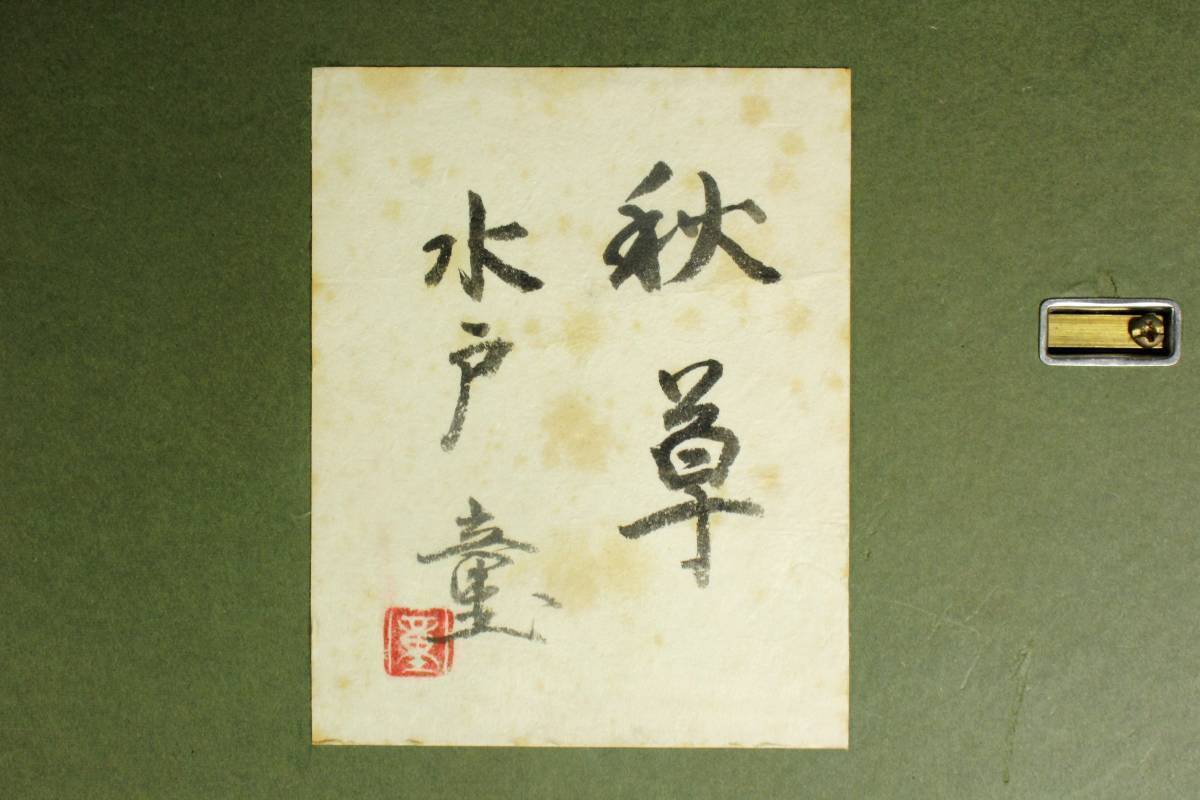 秋草
水戸童
童